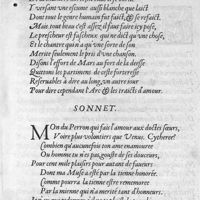 Y versant vne escume aussi blanche que laict
Dont tout le genre humain fut faict, & se refaict.
Mais tout beau c'est assez, il faut faire icy pose,
Le prescheur est fascheux qui ne dict qu'vne chose,
Et le chantre qui n'a qu'vne sorte de son
Merite seulement le pris d'vne chanson.
Disons l'effort de Mars au fort de la deesse
Quittons les partimens de ceste forteresse
Reseruables à dire au long, vn autre iour
Pour dire cependant l'Arc & les traicts d'amour.
SONNET.
MOn du Perron qui fais l'amour aux doctes sœurs,
Voire plus volontiers que Venus, Cytheree?
Combien qu'aucunefois ton ame enamouree
Ou homme tu n'es pas, gouste de ses douceurs,
Pour cent mile plaisirs pour autant de faueurs
Dont ma Muse a esté par la tienne honorée.
Comme pourra la tienne estre rememorée
Par la mienne qui n'a merité tant d'honneurs.